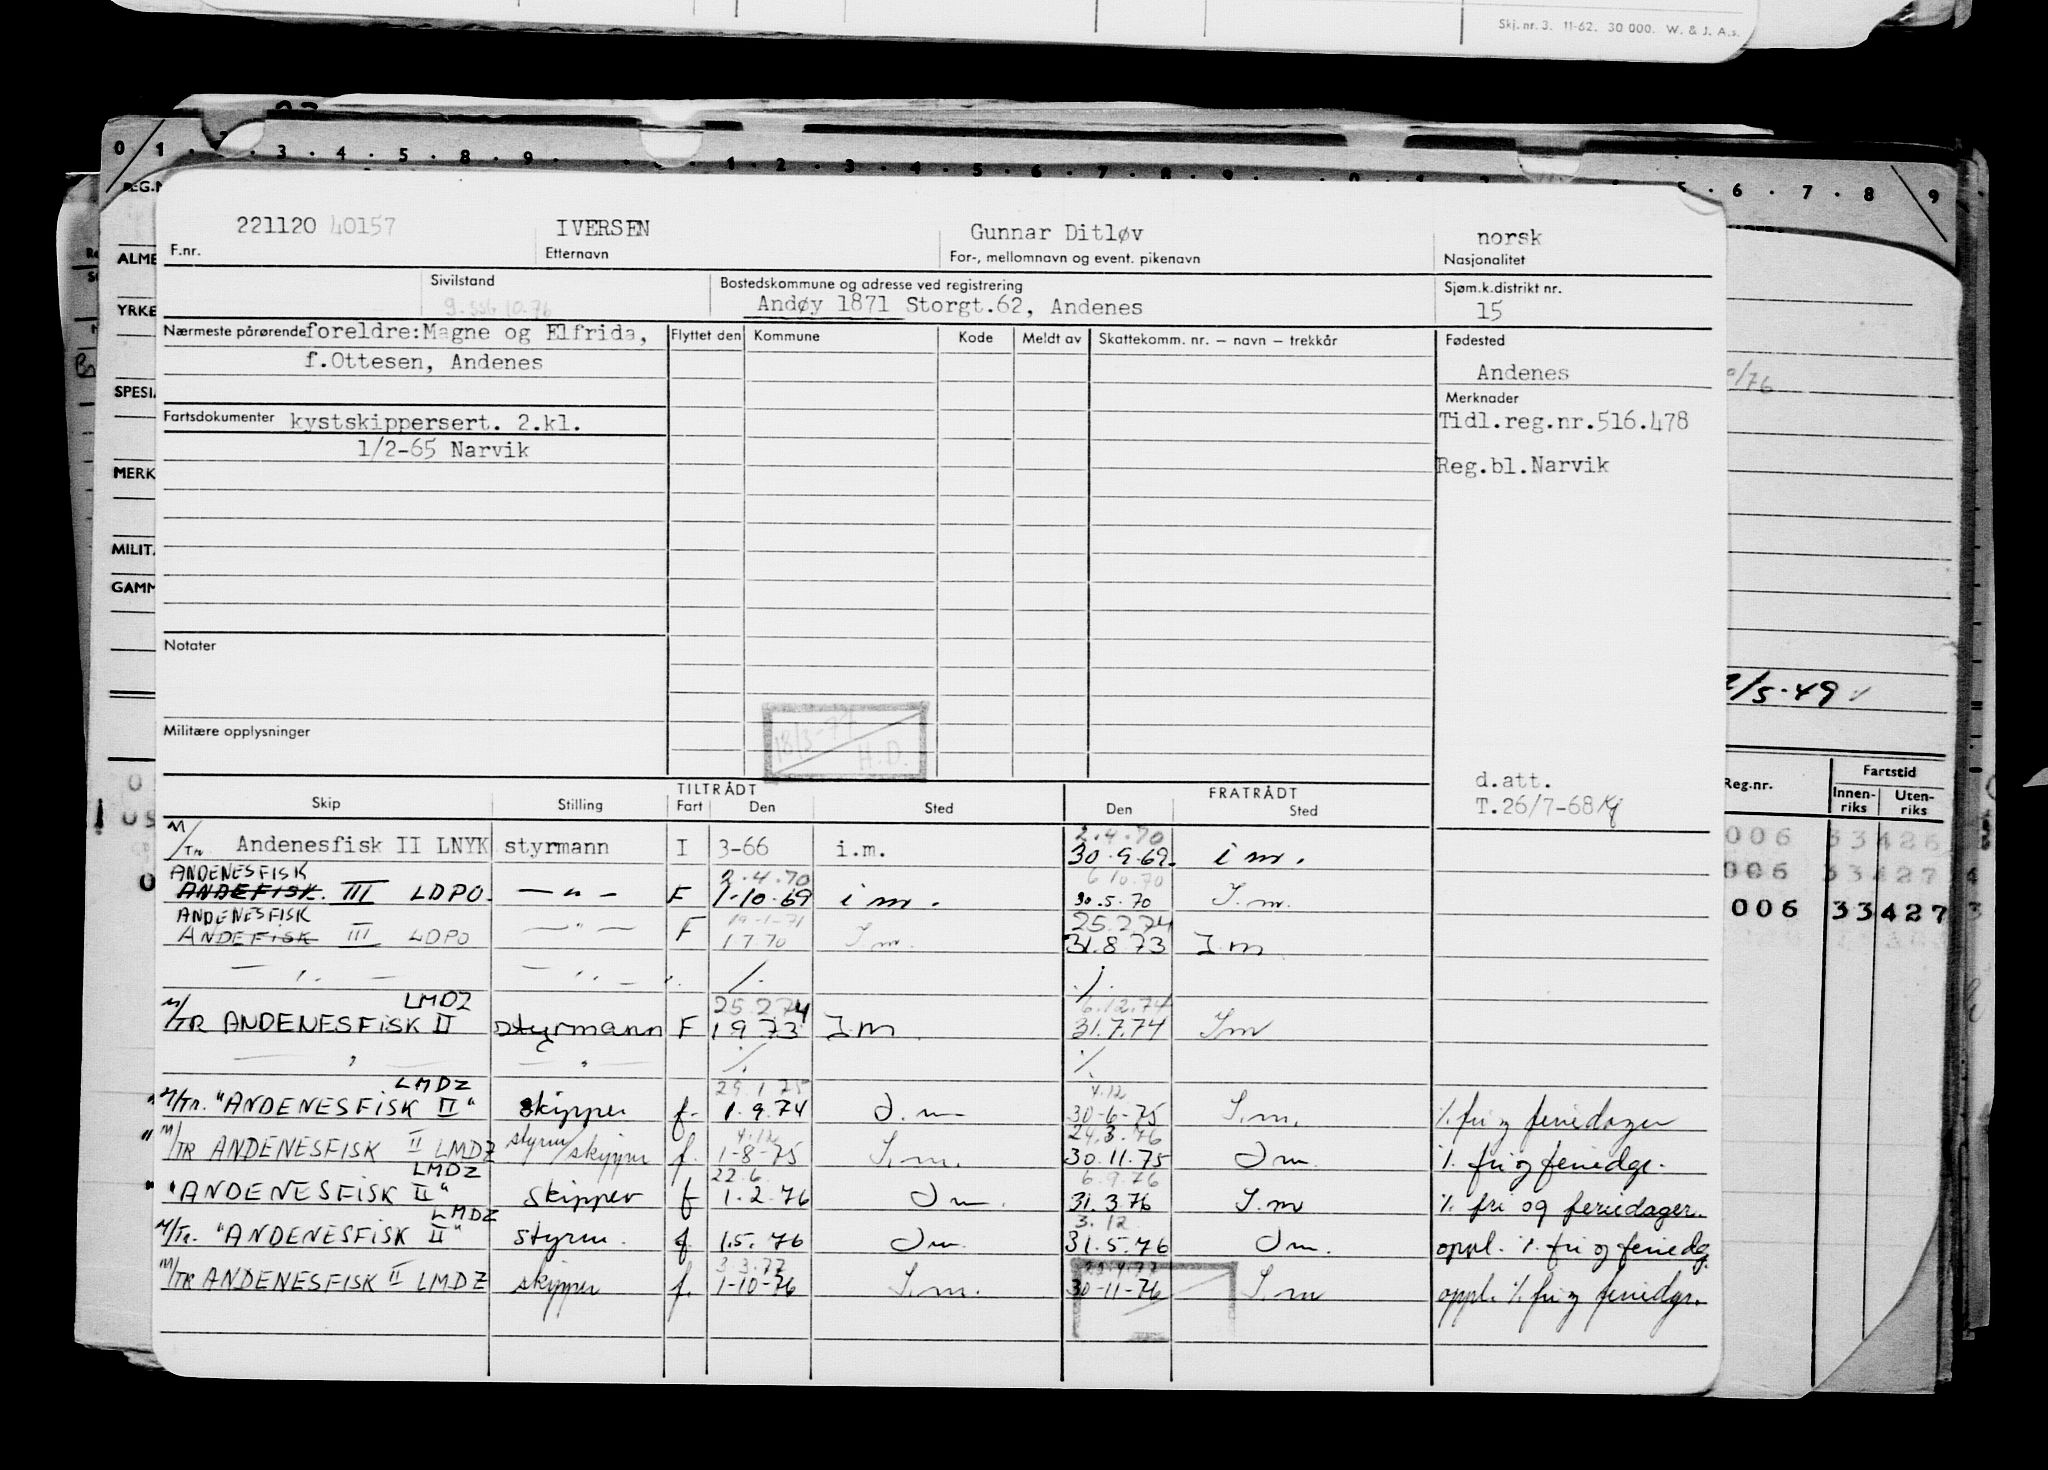 Skj. nr. 3. 11-62. 30 000. W. & J. A.s.
0 1 . 3 . 4 . 5 . 8 . 9 . 1 . 2 . 3 . 4 . 5 . 6 . 7 . 8 . 9 . 6 . 7 . 8 . 9
221120 40157 IVERSEN Gunnar Ditløv norsk
F.nr. Etternavn For-, mellomnavn og event. pikenavn Nasjonalitet
Sivilstand Bostedskommune og adresse ved registrering Sjøm.k.distrikt nr.
Andøy 1871 Storgt.62, Andenes 15
Nærmeste pårørende foreldre:Magne og Elfrida, Flyttet den Kommune Kode Meldt av Skattekomm. nr. – navn – trekkår Fødested
f.Ottesen, Andenes Andenes
Merknader
Fartsdokumenter kystskippersert. 2.kl. Tidl.reg.nr.516.478
1/2-65 Narvik Reg.bl.Narvik
ALME
YRKE
SPESIA
MERK
MILIT.
GAMM
Notater
2/5.49
Militære opplysninger 18/3-77 H.D.
d.att.
T.26/7-68
TILTRÅDT FRATRÅDT
Skip Stilling Fart Den Sted Den Sted
Reg.nr. Fartstid
Innen-riks Uten-riks
006 33426
006 33427
006 33427
2.4.70
M/Tr Andenesfisk II LNYK styrmann I 3-66 i.m. 30.9.69. i m.
ANDENESFISK 2.4.70 6.10.70
ANDEFISK. III LDPO. — " — F 1.10.69 i m. 30.5.70 I.m.
ANDENESFISK 19.1.71 25.2.74
ANDEFISK III LDPO — " — F 1.7.70 I.m. 31.8.73 I.m
— " — — " — ./. ./.
LMDZ 25.2.74 6.12.74
M/TR ANDENESFISK II styrmann F 1.9.73 I.m. 31.7.74 I.m
— " — — " — ./. ./.
LMDZ 29.1.75 4.12
M/Tr. "ANDENESFISK II" skipper f. 1.9.74 I.m 30-6-75 I.m. ./. fri og feriedager
4.12 24.3.76
M/TR ANDENESFISK II LMDZ styrm/skipper f. 1-8-75 I.m. 30.11.75 I m. ./. fri og feriedgr.
LMDZ 22.6. 6.9.76
"ANDENESFISK II" skipper f 1.2.76 I m. 31.3.76 I.m ./. fri og feriedager.
LMDZ 3.12
M/Tr. "ANDENESFISK II" styrm. f 1.5.76 I m. 31.5.76 I m. oppl. ./. fri og feriedg.
3.3.77
M/TR ANDENESFISK II LMDZ skipper f. 1-10-76 I.m. 30-11-76 I.m oppl. ./. fri og feriedgr.